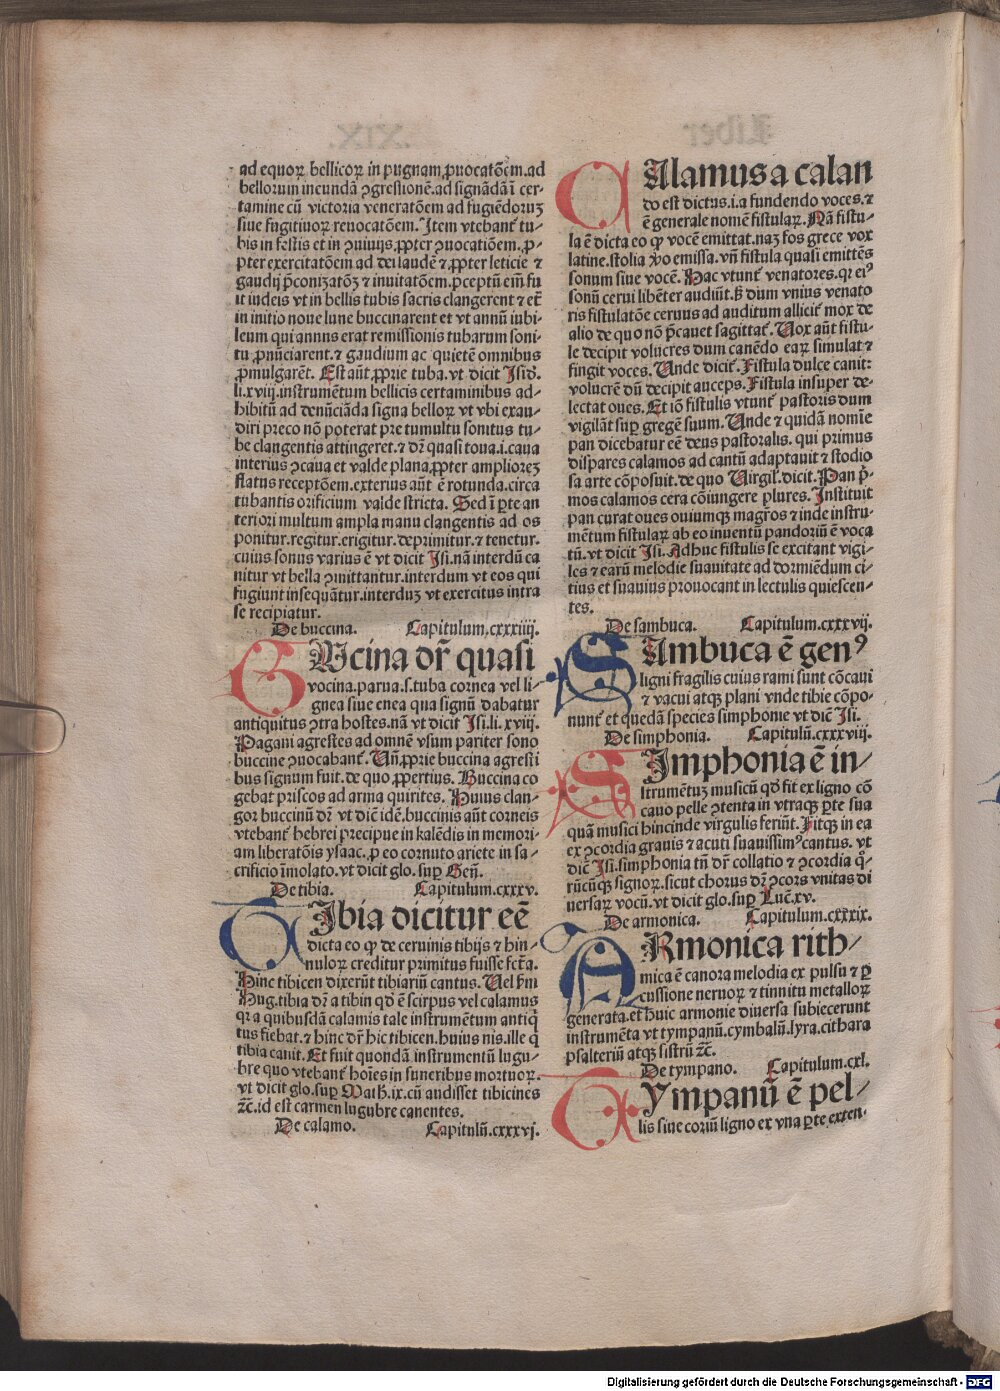 ad equoꝝ bellicoꝝ in pugnam ꝓuocatõem. ad
bellorum incundã ↄgressionẽ. ad signãdã ĩ cer⸗
tamine cũ victoria veneratõem ad fugiẽdoruꝫ
siue fugitiuoꝝ reuocatõem. Item vtebant᷑ tu⸗
bis in festis et in ↄuiuijs ꝓpter ↄuocatiõem. ꝓ⸗
pter exercitatõem ad dei laudẽ ⁊ ꝓpter leticie ⁊
gaudij p̃conizatõꝫ ⁊ inuitatõem. p̃ceptũ eim̃ fu
it iudeis vt in bellis tubis sacris clangerent ⁊ et̃
in initio noue lune buccinarent et vt annũ iubi⸗
leum qui annns erat remissionis tubarum soni⸗
tu ꝓnũciarent. ⁊ gaudium ac quietẽ omnibus
ꝓmulgarẽt. Est aũt ꝓprie tuba. vt dicit Isid̃.
li. xviij. instrumẽtum bellicis certaminibus ad⸗
hibitũ ad denũciãda signa belloꝝ vt vbi exau⸗
diri preco nõ poterat pre tumultu sonitus tu⸗
be clangentis attingeret. ⁊ dr̃ quasi toua. i. caua
interius ↄcaua et valde plana ꝓpter ampliorẽꝫ
flatus receptõem. exterius aũt ẽ rotunda. circa
tubantis orificium valde stricta. Sed ĩ ꝑte an
teriori multum ampla manu clangentis ad os
ponitur. regitur. erigitur. deprimitur. ⁊ tenetur.
cuius sonus varius ẽ vt dicit Isi. nã interdũ ca
nitur vt bella ↄmittantur. interdum vt eos qui
fugiunt insequãtur. interduꝫ vt exercitus intra
se recipiatur.
De buccina. Capitulum. cxxxiiij.
BUcina dr̃ quasi
vocina. parua. s. tuba cornea vel li⸗
gnea siue enea qua signũ dabatur
antiquitus ↄtra hostes. nã vt dicit Isi. li. xviij.
Pagani agrestes ad omnẽ vsum pariter sono
buccine ↄuocabant᷑. Vñ ꝓprie buccina agresti
bus signum fuit. de quo ꝓpertius. Buccina co
gebat priscos ad arma quirites. Huius clan⸗
gor buccinũ dr̃ vt dic̃ idẽ. buccinis aũt corneis
vtebant᷑ hebrei precipue in kalẽdis in memori⸗
am liberatõis ysaac. ꝓ eo cornuto ariete in sa⸗
crificio ĩmolato. vt dicit glo. suꝑ Geñ.
De tibia. Capitulum. cxxxv.
TIbia dicitur eẽ
dicta eo ꝙ de ceruinis tibijs ⁊ hin⸗
nuloꝝ creditur primitus fuisse fc̃ta.
Hinc tibicen dixerũt tibiariũ cantus. Uel ẜm
Hug. tibia dr̃ a tibin qd̓ ẽ scirpus vel calamus
qꝛ a quibusdã calamis tale instrumẽtum antiq̃
tus fiebat. ⁊ hinc dr̃ hic tibicen. huius nis. ille q̃
tibia canit. Et fuit quondã instrumentũ lugu⸗
bre quo vtebant᷑ hoĩes in funeribus mortuoꝝ.
vt dicit glo. suꝑ Math. ix. cũ audisset tibicines
⁊c̃. id est carmen lugubre canentes.
De calamo. Capitulũ. cxxxvj.
CAlamus a calan
do est dictus. i. a fundendo voces. ⁊
ẽ generale nomẽ fistulaꝝ. Nã fistu⸗
la ẽ dicta eo ꝙ vocẽ emittat. naꝫ fos grece vox
latine. stolia ꝟo emissa. vñ fistula quasi emittẽs
sonum siue vocẽ. Hac vtunt᷑ venatores. qꝛ eiꝰ
sonũ cerui libẽter audiũt. ẜ dum vnius venato
ris fistulatõe ceruus ad auditum allicit᷑ mox de
alio de quo nõ p̃cauet sagittat᷑. Uox aũt fistu⸗
le decipit volucres dum canẽdo eaꝝ simulat ⁊
fingit voces. Unde dicit᷑. Fistula dulce canit:
volucrẽ dũ decipit auceps. Fistula insuper de⸗
lectat oues. Et iõ fistulis vtunt᷑ pastoris dum
vigilãt suꝑ gregẽ suum. Unde ⁊ quidã nomĩe
pan dicebatur eẽ deus pastoralis. qui primus
dispares calamos ad cantũ adaptauit ⁊ stodio
sa arte cõposuit. de quo Uirgil. dicit. Pan p̃⸗
mos calamos cera cõiungere plures. Instituit
pan curat oues ouiumqꝫ magr̃os ⁊ inde instru⸗
mẽtum fistulaꝝ ab eo inuentũ pandoriũ ẽ voca
tũ. vt dicit Isi. Adhuc fistulis se excitant vigi⸗
les ⁊ earũ melodie suauitate ad dormiẽdum ci⸗
tius et suauius prouocant in lectulis quiescen⸗
tes.
De sambuca. Capitulum. cxxxvij.
SAmbuca ẽ genꝰ
ligni fragilis cuius rami sunt cõcaui
⁊ vacui atqꝫ plani vnde tibie cõpo⸗
nunt᷑ et quedã species simphonie vt dic̃ Isi.
De simphonia. Capitulũ. cxxxviij.
SImphonia ẽ in⸗
strumẽtuꝫ musicũ qd̓ fit ex ligno cõ
cauo pelle ↄtenta in vtraqꝫ ꝑte sua
quã musici hincinde virgulis feriũt. Fitqꝫ in ea
ex ↄcordia grauis ⁊ acuti suauissimꝰ cantus. vt
dic̃ Isi. simphonia tñ dr̃ collatio ⁊ ↄcordia q̃⸗
rũcũqꝫ signoꝝ. sicut chorus dr̃ ↄcors vnitas di
uersaꝝ vocũ. vt dicit glo. suꝑ Luc̃. xv.
De armonica. Capitulum. cxxxix.
ARmonica rith⸗
mica ẽ canora melodia ex pulsu ⁊ ꝑ
cussione neruoꝝ ⁊ tinnitu metalloꝝ
generata. et huic armonie diuersa subiecerunt
instrumẽta vt tympanũ. cymbalũ. lyra. cithara
psalteriũ atqꝫ sistrũ ⁊c̃.
De tympano. Capitulum. cxl.
TYmpanũ ẽ pel⸗
lis siue coriũ ligno ex vna ꝑte exten⸗
Digitalisierung gefördert durch die Deutsche Forschungsgemeinschaft - DFG